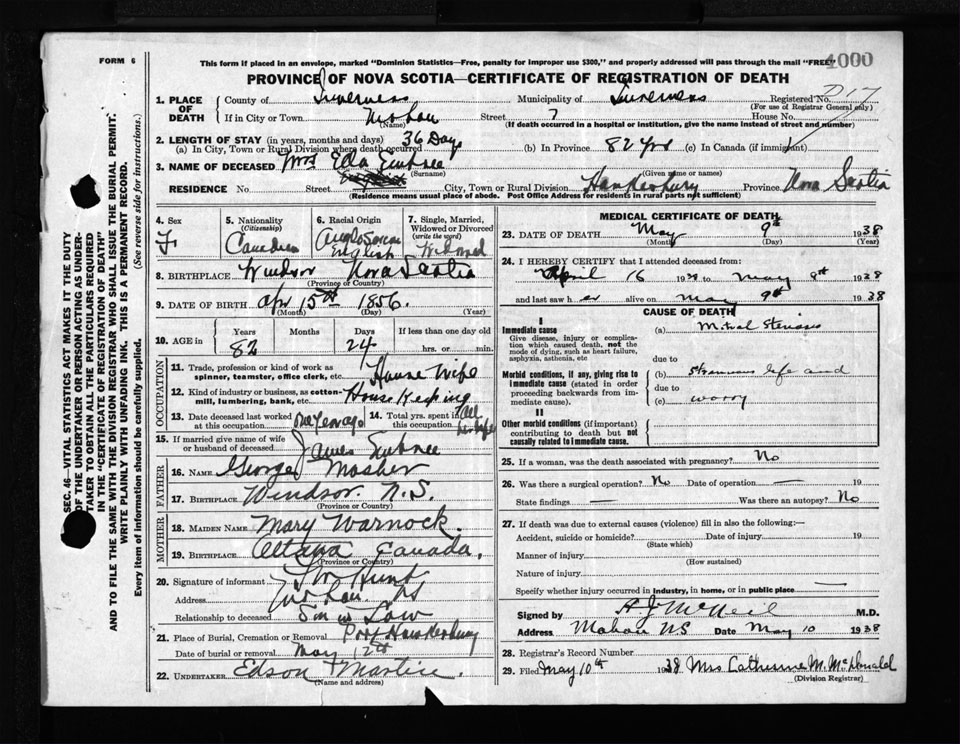 FORM 6
This form if placed in an envelope, marked "Dominion Statistics—Free, penalty for improper use $300," and properly addressed will pass through the mail "FREE"
4000
PROVINCE OF NOVA SCOTIA—CERTIFICATE OF REGISTRATION OF DEATH
SEC. 46—VITAL STATISTICS ACT MAKES IT THE DUTY
OF THE UNDERTAKER OR PERSON ACTING AS UNDER-
TAKER TO OBTAIN ALL THE PARTICULARS REQUIRED
IN THE "CERTIFICATE OF REGISTRATION OF DEATH"
AND TO FILE THE SAME WITH THE DIVISION REGISTRAR WHO SHALL ISSUE THE BURIAL PERMIT.
WRITE PLAINLY WITH UNFADING INK. THIS IS A PERMANENT RECORD.
Every item of information should be carefully supplied. (See reverse side for instructions.)
1. PLACE OF DEATH
County of Inverness Municipality of Inverness Registered No. 
(For use of Registrar General only)
If in City or Town Mabou Street 7 House No.
(Name) (If death occurred in a hospital or institution, give the name instead of street and number)
2. LENGTH OF STAY (in years, months and days) 36 Days
(a) In City, Town or Rural Division where death occurred (b) In Province 82 yrs (c) In Canada (if immigrant)
3. NAME OF DECEASED Mrs Eda Embree
(Surname) (Given name or names)
RESIDENCE No. Street City, Town or Rural Division Hawkesbury Province Nova Scotia
(Residence means usual place of abode. Post Office Address for residents in rural parts not sufficient)
4. Sex F
5. Nationality (Citizenship) Canadian
6. Racial Origin Anglo Saxon English
7. Single, Married, Widowed or Divorced (write the word) Widowed
8. BIRTHPLACE Windsor Nova Scotia
(Province or Country)
9. DATE OF BIRTH Apr 15th 1856
(Month) (Day) (Year)
10. AGE in Years 82 Months Days 24 If less than one day old hrs. or min.
OCCUPATION
11. Trade, profession or kind of work as spinner, teamster, office clerk, etc. House Wife
12. Kind of industry or business, as cotton-mill, lumbering, bank, etc. House Keeping
13. Date deceased last worked at this occupation One Year ago
14. Total yrs. spent in this occupation All her life
15. If married give name of wife or husband of deceased James Embree
FATHER
16. NAME George Mosher
17. BIRTHPLACE Windsor N.S.
(Province or Country)
MOTHER
18. MAIDEN NAME Mary Warnock
19. BIRTHPLACE Ottawa Canada,
(Province or Country)
20. Signature of informant Hunt
Address Mabou NS
Relationship to deceased Son in Law
21. Place of Burial, Cremation or Removal Port Hawkesbury
Date of burial or removal May 12th
22. UNDERTAKER Edson
(Name and address)
MEDICAL CERTIFICATE OF DEATH
23. DATE OF DEATH May 9th 1938
(Month) (Day) (Year)
24. I HEREBY CERTIFY that I attended deceased from:
April 16 1938 to May 9th 1938
and last saw her alive on May 9th 1938
CAUSE OF DEATH
I
Immediate cause (a) Mitral Stenosis
Give disease, injury or complication which caused death, not the mode of dying, such as heart failure, asphyxia, asthenia, etc
due to
Morbid conditions, if any, giving rise to immediate cause (stated in order proceeding backwards from immediate cause). (b) Strenuous life and
due to
(c) worry
II
Other morbid conditions (if important) contributing to death but not causally related to immediate cause.
25. If a woman, was the death associated with pregnancy? No
26. Was there a surgical operation? No Date of operation —
State findings — Was there an autopsy? No
27. If death was due to external causes (violence) fill in also the following:—
Accident, suicide or homicide? Date of injury 19
(State which)
Manner of injury
(How sustained)
Nature of injury
Specify whether injury occurred in industry, in home, or in public place —
Signed by H J McNeil M.D.
Address Mabou NS Date May 10 1938
28. Registrar's Record Number
29. Filed May 10th 1938 Mrs Catherine M. McDonald
(Division Registrar)